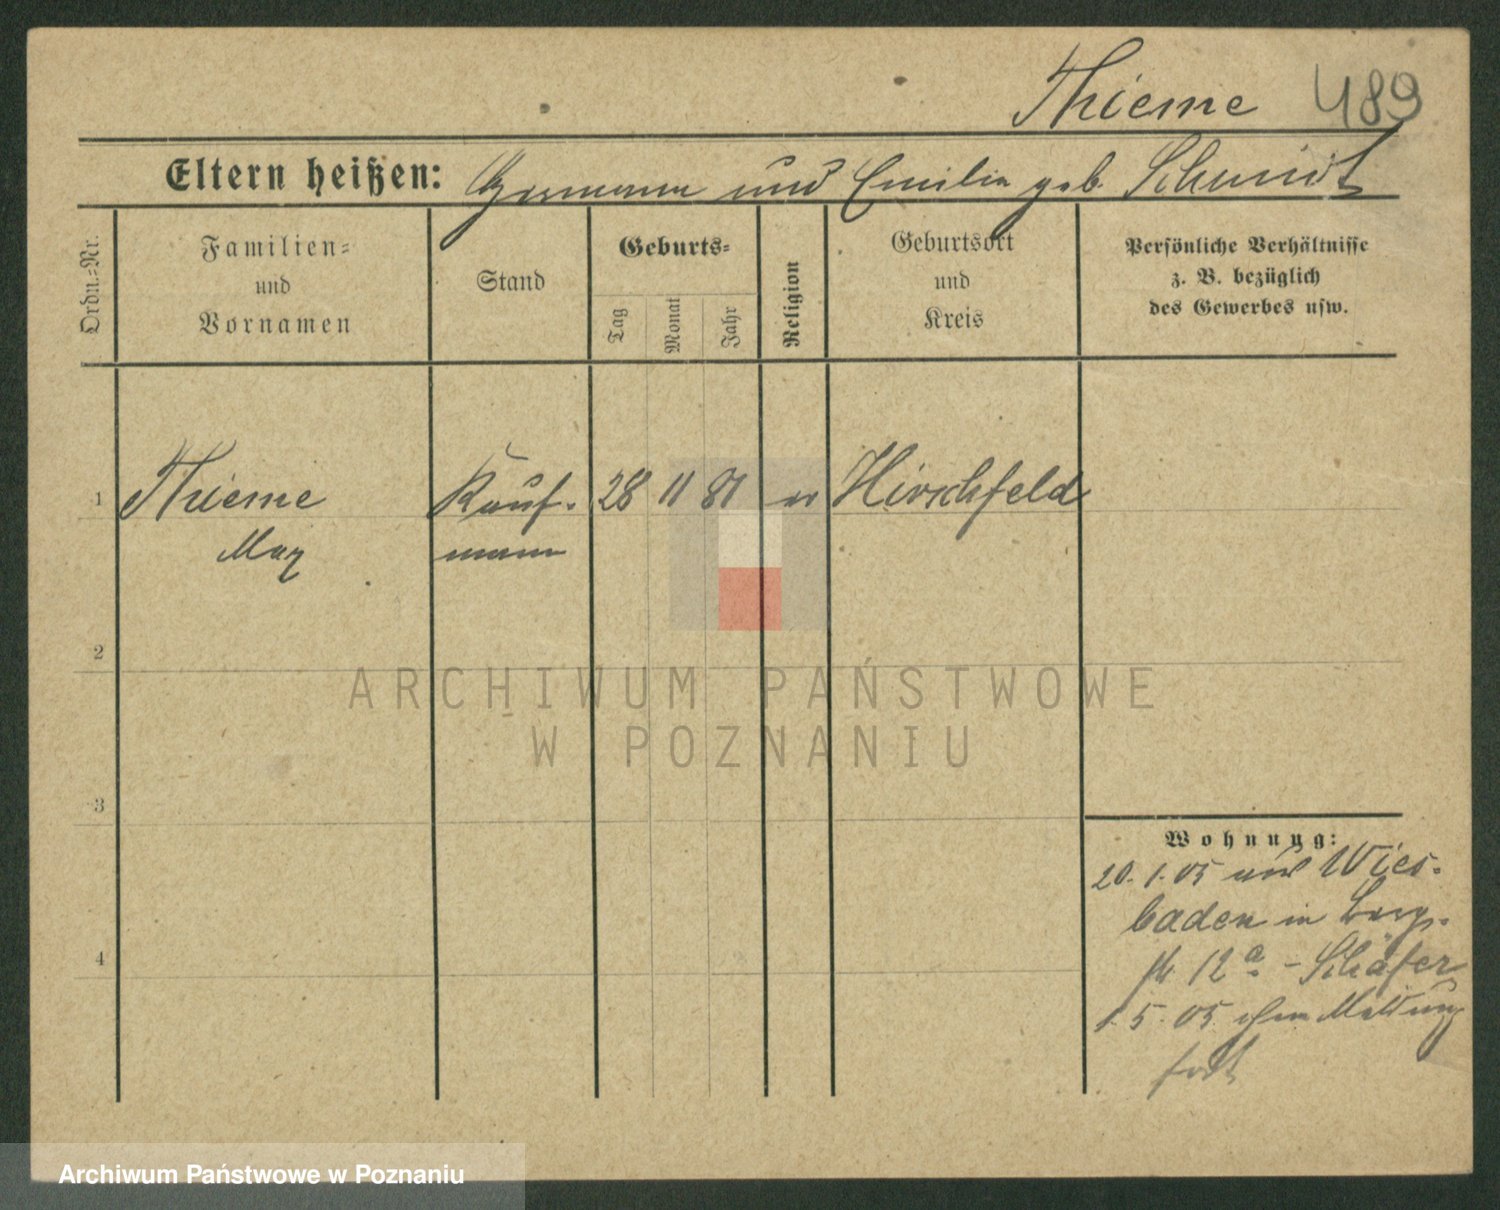 Thieme 489
Eltern heißen: Hermann und Emilie geb. Schmidt
Ordn.-Nr.
Familien-
und
Vornamen
Stand
Geburts-
Tag
Monat
Jahr
Religion
Geburtsort
und
Kreis
Persönliche Verhältnisse
z. B. bezüglich
des Gewerbes usw.
1 Thieme Kauf- 28 11 81 ev Hirschfeld
Max mann
2
ARCHIWUM PAŃSTWOWE
W POZNANIU
3
Wohnung:
20. 1. 05 von Wies-
baden in Berg-
str 12a - Schäfer
4
1. 5. 05 ohne Meldung
fort
Archiwum Państwowe w Poznaniu